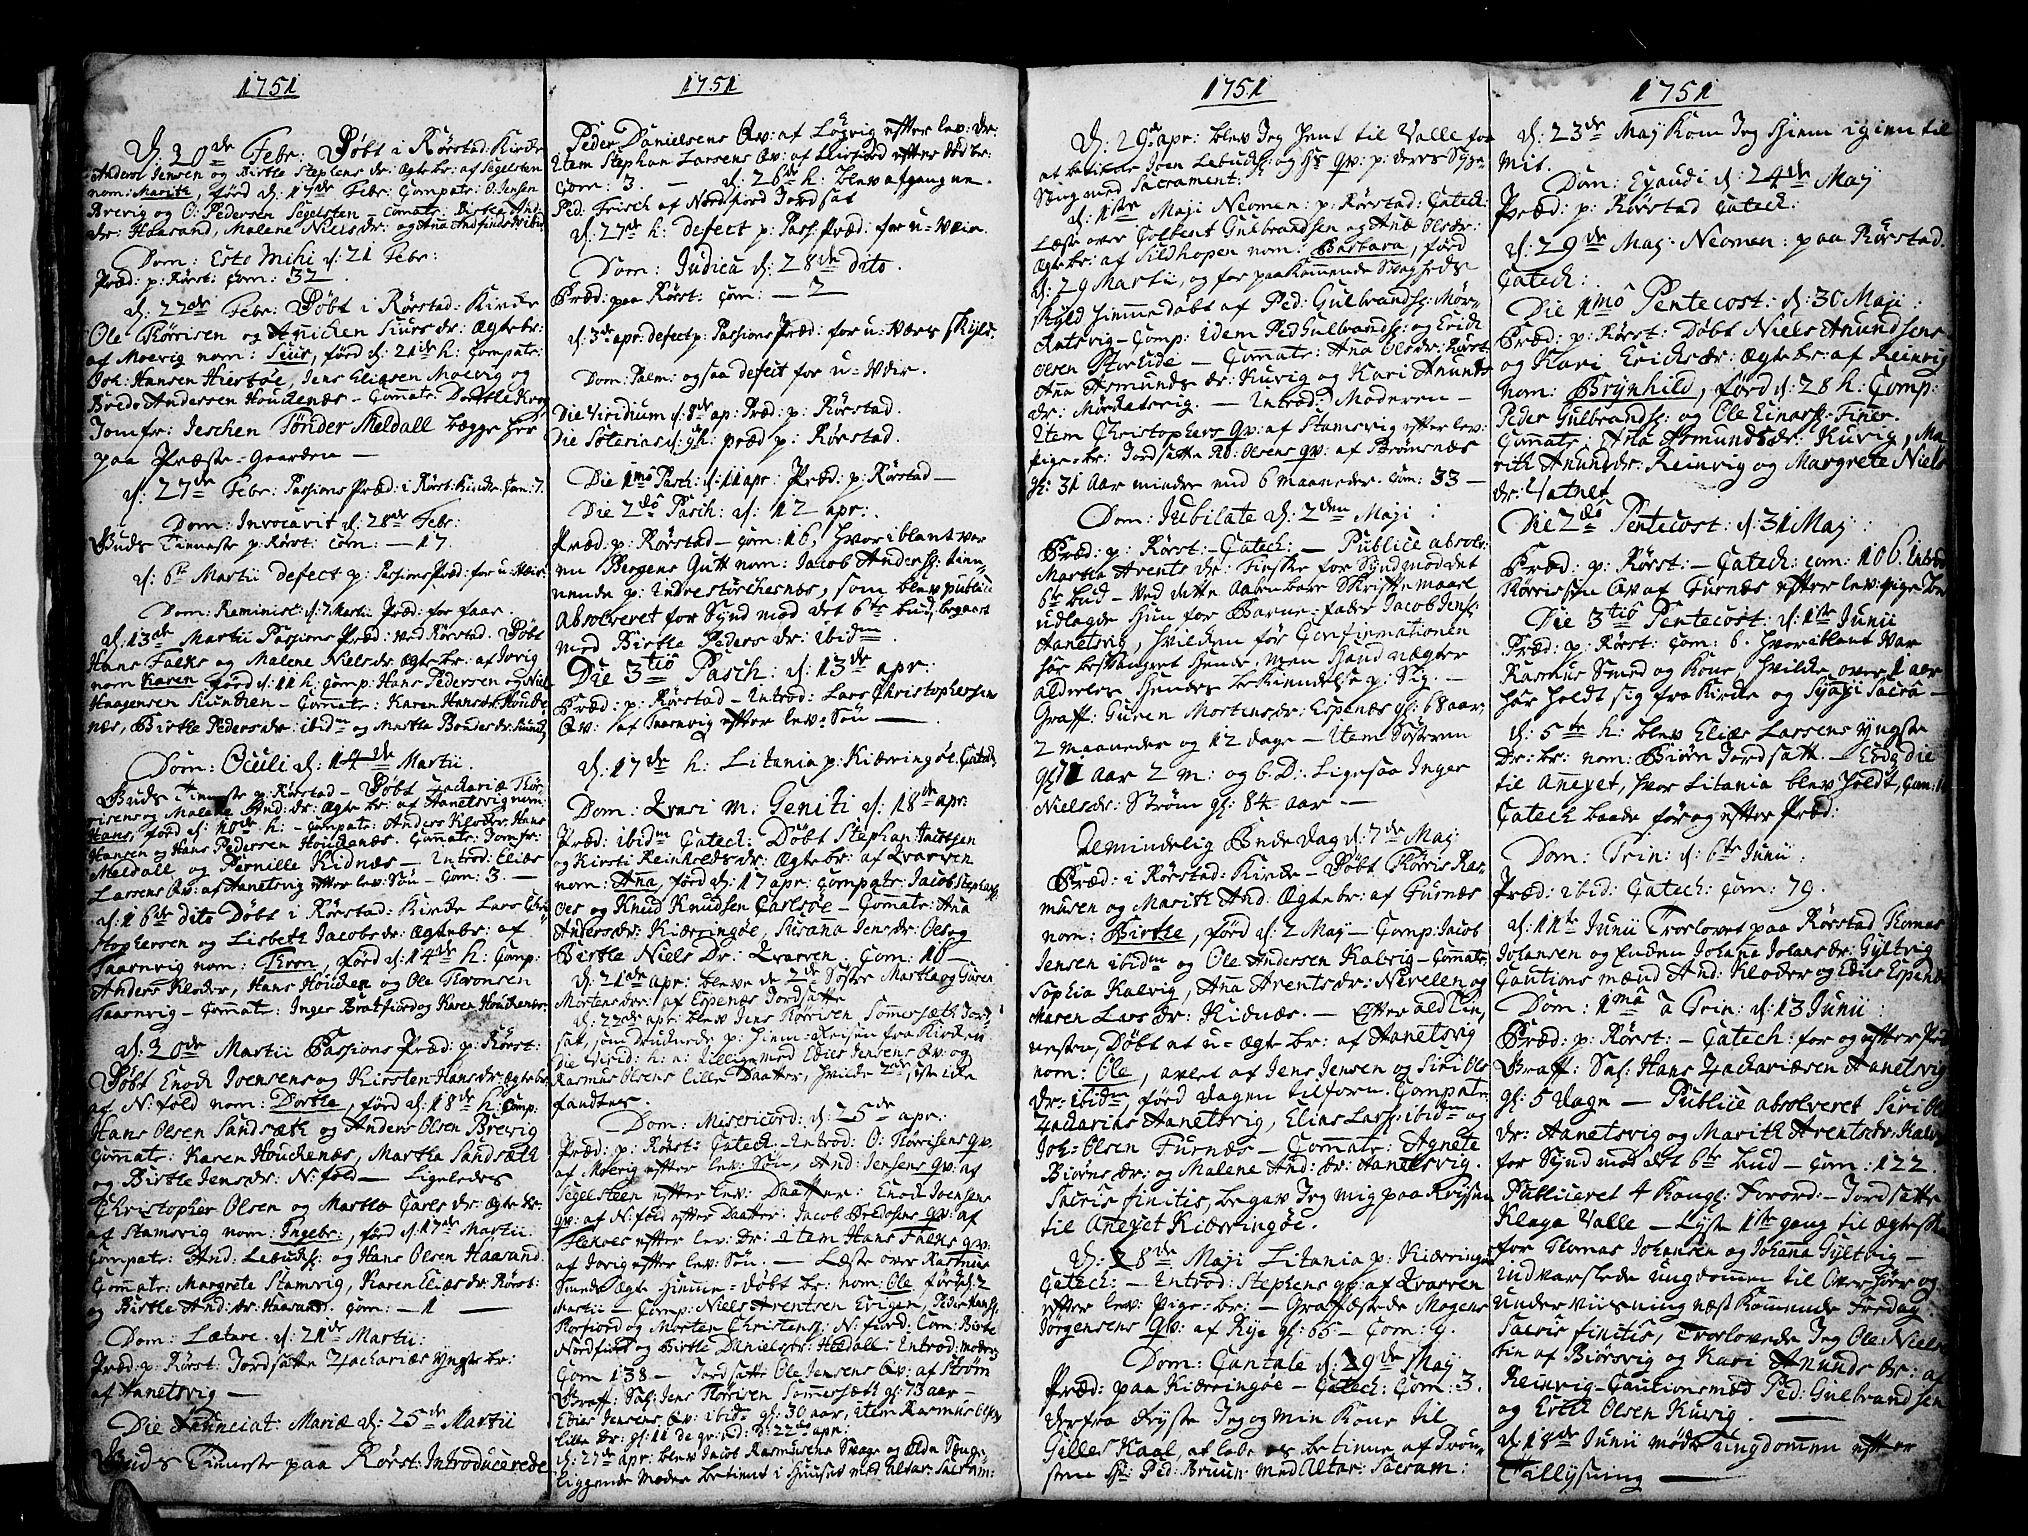 1751
D: 20de Febr: Døbt i Rørstad: Kirke
Anders Jensen og Birthe Stephens dr: Ægte br: af Segelsten
nom: Marith, fØrd d: 17de Febr: Compatr: O: Jensen
Brevig og O: Pedersen Segelsten, Comatr: Birthe And:
dr: Haarand, Malene Niels dr: og Ana Andfinds dr ibid
Dom: Esto Mihi d: 21 Febr:
Præd: p: Rørst: Com: 32
d: 22de Febr: Døbt i Rørstad: Kirke
Ole Thorrisen og Anichen Siurs dr: Ægte br:
af Moevig nom: Siur, fØrd d: 21de h: Compatr:
Joh: Hansen Hiertøe, Jens Eliasen Molvig og
Brede Andersen Houchenæs – Comatr: Dorthe
Jomfr: Jeschen Tønder Meldall begge her
paa Præste-Gaarden –
d: 27de Febr: Passions Præd: i Rørst: Kirke. Com: 7.
Dom: Invocavit d: 28de Febr:
Guds Tieneste p: Rørst: Com: – 17.
d: 6te Martii defect p: Passions Præd: for u-Veir.
Dom: Reminisc: d: 7 Martii Præd: for faar.
d: 13de Martii Passions Præd: ved Rørstad. Døbt
Hans Falks og Malene Niels dr: Ægte br: af Jovig
nom Karen fØrd d: 11 h: Comp: Hans Pedersen og Niels
Haagensen – Comatr: Karen Hans dr: Houche
næs, Birthe Peders dr: ibidm og Marthe
Dom: Oculi d: 14de Martii.
Guds Tieneste p: Rørstad – Døbt Zachariæ Thor
risens og Malene And: dr: Ægte br: af Hanetsvig nom:
Hans, fØrd d: 10de h: – Compatr: Anders Klocker, Hans
Hansen og Hans Pedersen Houchenæs. Comatr: Jomfr:
Meldall og Pernille Kidnæs – Introd: Eliæs
Larsens Qv: af Hanetsvig efter lev: Søn – Com: 3. –
d: 16de dito Døbt i Rørstad: Kirke Lars Chri
stophersen og Lisbeth Jacobs dr: Ægte br: af
Taarnvig nom: Thron, fØrd d: 14de h: Comp:
Anders Klocker, Hans Houchen og Ole Thronsen
Taarnvig – Comatr: Inger Bratfiord og Karen Houchenæs
d: 20de Martii Passions Præd: p: Rørst:
Døbt Enoch Joensens og Kirsten Hans dr: Ægte br:
af N: fold nom: Dorthe, fØrd d: 18de h: Comp:
Hans Olsen Sandsæth og Anders Olsen Brevig
Comatr: Karen Houchenæs, Martha Sandsæth
og Birthe Jens dr: N: fold – Ligeledes
Christopher Olsen og Marthe Carls dr: Ægte br:
af Stamsvig nom: Ingebr:, fØrd d: 17de Martii
Compatr: And: og Hans Olsen Haarand
Comatr: Margrete Stamsvig, Karen Elias dr: Rørst:
og Birthe And: dr: Haarand. Com: – 1 –
Dom: Lætare. d: 21de Martii:
Præd: p: Rørst: Jordsatte Zachariæs yngste br:
af Hanetsvig –
Die Anunciat: Mariæ d: 25de Martii
Guds Tieneste paa Rørst: Introducerede
1751
Peder Danielsens Qv: af Løgvig efter lev: dr:
Item Stephan Larsens Qv: af Leirfiord efter død br:
Com: 3. – d: 26de h: blev afgangne
Ped: Frisch af Nordfiord Jordsat
d: 27de h: defect p: Pass: Præd: for u-Veir.
Dom: Judica d: 28de dito.
Præd: paa Rørst: Com: – 2
d: 3de apr: defect p: Passions Præd: for u-Veirs skyld
Dom: Palm: ogsaa defect for u-Veir.
Die Viridium d: 8de ap: Præd: p: Rørstad.
Die Soterias d: 9h: præd p: Rørstad.
Die 1mo Pasch: d: 11 apr: Præd: p: Rørstad –
Die 2do Pasch: d: 12 apr:
Præd: p: Rørstad – Com: 16, hvoriblant var
en Bergens Gutt nom: Jacob Anders: tien
nende p: Indrestorchenæs, som blev publice
absolveret for Synd mod det 6te bud, begaaet
med Birthe Peders dr: ibidm.
Die 3tio Pasch: d: 13de apr:
Præd: p: Rørstad – Introd: Lars Christophersens
Qv: af Taarnvig efter lev: Søn –
d: 17de h: Litania p: Kierringøe. Catech
Dom: Qvasi m. Geniti d: 18de apr:
Præd: ibidm Catech: Døbt Stephan Jacobsen
og Kirsti Reinholds dr: Ægte br: af Qvarven
nom: Ana, fØrd d: 17 apr: Compatr: Jacob Stephans:
Oes og Knud Knudsen Carlsøe – Comatr: Ana
Anders dr: Kierringøe, Susana Jens dr: Oes og
Birthe Niels Dr: Qvarven Com: 16 –
d: 21de apr: bleve de 2de Søstre Martha og Guren
Mortens dr: af Espenæs Jordsatte
d: 22de apr: blev Jens Thorrisen Somersæth Jord
sat, som druknede p: Hiem-Reisen fra Kirken
Die Virid: h: a: tillige med Edies Jensens Qv: og
Rasmus Olsens lille Daatter, hvilke 2de sidste icke
fandtes.
Dom: Misericord: d: 25de apr:
Præd: p: Rørst: Catech – Introd: O: Thorrisens qv:
af Moevig efter lev: Søn, And: Jensens qv: af
Segelsteen efter lev: Daatter: Enoch Joensens
qv: af N: fold efter Daatter: Jacob qv: af
efter lev: dr: item Hans Falks qv:
af Jovig efter lev: Søn. – Læste over Rasmus
Smeds Ægte Hiemme-døbt br: nom: Ole fØrd d: 2
Martii – Comp: Niels Arentsen Evigen, Peder Hans:
og Morten Christens: N: fiord. Com: Birte
Nordfiord og Birthe Daniels dr: Introd: moderen
Com 138 – Jordsatte Ole Jensens Qv: af Strøm
Graff: Sal: Jens Thorrisen Somersæth gl: 73 aar –
Edies Jensens Qv: ibidm gl: 30 aar, item Rasmus Olsens
lille dr: gl: 11 d: 22de apr:
d: 27de apr: blev Jacob Rasmusens Svage og Senge
liggende Moder betient i Huuset med altar: Sacram:
1751
D: 29de apr: blev Jeg hent til Valle for
at betiene Joen og Hs Qv: p: deres Syge
Seng med Sacrament:
d: 1ste Maji Neomen: p: Rørstad: Catech:
Læste over Gulbrandsen og Ana Ols dr:
Ægte br: af Sildhopen nom: Barbara, fØrd
d: 29 Martii, og for paakommende Svagheds
skyld hiemmedøbt af Ped: Gulbrands: Mør
chetsvig – Comp: Idem Ped Gulbrands: og Erich
Olsen Storlide – Comatr: Ana Ols dr: Rørst:
Ana Asmunds dr: Kuvig og Kari Anunds
dr: Mørchetsvig. – Introd: Moderen –
Item Christophers Qv: af Stamsvig efter lev:
Pige-br: Jordsatte Ro: Olsens qv: af Brømsnæs
gl: 31 Aar mindre end 6 maaneder. Com: 33 –
Dom: Jubilate d: 2den Maji
Præd: p: Rørst: – Catech: – Publice absolv:
Martha Arents dr: for Synd mod det
6te bud – Ved dette Aabenbare Skriftemaal
udlagde Hun for Barne-fader Jacob Jens:
Hanetsvig, hvilcken før Confirmationen
har besvangret hende, men hand nægter
aldeles hendes bekiendelse p: Sig. –
Graff: Guren Mortens dr: Espenæs gl: 68 aar
2 maaneder og 12 dage – Item Søsteren
gl: 71 aar 2 m: og 6 D: Ligesaa Inger
Niels dr: Strøm gl: 84 aar –
Almindelig Bede dag d: 7de Maji
Præd: i Rørstad: Kirke – Døbt Thorris Ras
musen og Marith And: Ægte br: af Furnæs
nom: Birthe, fØrd d: 2 Maji – Comp: Jacob
Jensen ibidm og Ole Andersen Kalvig – Comatr:
Sophia Kalvig, Ana Arents dr: Nevelen og
Maren Lars dr: Kidnæs. – Efter all Tie
neste, Døbt et u-Ægte br: af Hanetsvig
nom: Ole, avlet af Jens Jensen og Siri Ols
dr: ibidm, fØrd dagen tilforn. Compatr:
Zacharias Hanetsvig, Elias Lars: ibidm og
Joh: Olsen Furnæs – Comatr: Agnete
Biørns dr: og Malene And: dr: Hanetsvig.
Sacris finitis, begav Jeg mig paa Reysen
til Anexet Kierringøe.
d: 8de Maji Litania p: Kierringøe
Catech: – Introd: Stephens qv: af Qvarven
efter lev: Pige-br: – Graffæstede Mogens
Jørgensens Qv: af Rye gl: 65 – Com: 9.
Dom: Cantate d: 9de Maji
Præd: paa Kierringøe – Catech: Com: 3.
derfra reyste Jeg og min Kone til
Gilles Kaal, at lade os betiene af Prou
sten Hr: Ped: Bruun med Altar: Sacram:
1751
d: 23de Maji Kom Jeg hiem igien til
Mit.
Dom: Exaudi d: 24de Maji
Præd: p: Rørstad Catech:
d: 29de Maji Neomen: paa Rørstad.
Catech:
Die 1mo Pentecost: d: 30 Maji
Præd: p: Rørst: Døbt Niels Anundsens
og Kari Erichs dr: Ægte br: af Reinvig
nom: Brynhild, fØrd d: 28 h: Comp:
Peder Gulbrands: og Ole Einars: Finer
Comatr: Asta Asmunds dr: Kuvig, Ma
rith Anunds dr: Reinvig og Margrete Niels
dr: Vatnet
Die 2do Pentecost: d: 31 Maji
Præd: p: Rørst: – Catech: com: 106. Introd
Thorrissen Qv af Furnæs efter lev: pige
Die 3tio Pentecost: d: 1ste Junii
Præd: p: Rørst: Com: 6. hvoriblant var
Rasmus Smed og Kone, hvilke over 1 aar
har holdt sig fra Kirke og Synaxi Sacra –
d: 5te h: blev Eliæs Larsens yngste
dr: br: nom: Biørn Jordsatt. – Eodq die
til Anexet, hvor Litania blev holdt, Com:
Catech baade før og efter Præd:
Dom: Trin: d: 6te Junii:
Præd: ibid: Catech: Com: 79.
d: 11te Junii Trorlovet paa Rørstad Thomas
Johansen og Enken Johana Johans dr: Gyltvig
Cautions mænd And: Klocker og Edies Espenæs
Dom: 1ma à Trin: d: 13 Junii:
Præd: p: Rørst: – Catech: for og efter Præd
Graff: Sal: Hans Zachariæsen Hanetsvig
gl: 5 dage – Publice absolveret Siri Ols
dr: Hanetsvig og Marith Arents dr: Kalvig
for Synd mod det 6te bud – Com: 122.
Publiceret 4 Kongl: Forord: – Jordsatte
Klaga Valle – Lyste 1ste gang til Ægteskab
for Thomas Johansen og Johana Gyltvig –
Indvarslede ungdommen til Overhøre og
underviisning næstkommende Fredag
Sacris finitis, Trorlovede Jeg Ole Niels
sen af Biørsvig og Kari Anunds dr: af
Reinvig – Cautionsmæd Ped: Gulbrandsen
og Erich Olsen Kuvig. –
d: 18de Junii mødte ungdommen efter
Tillysning –